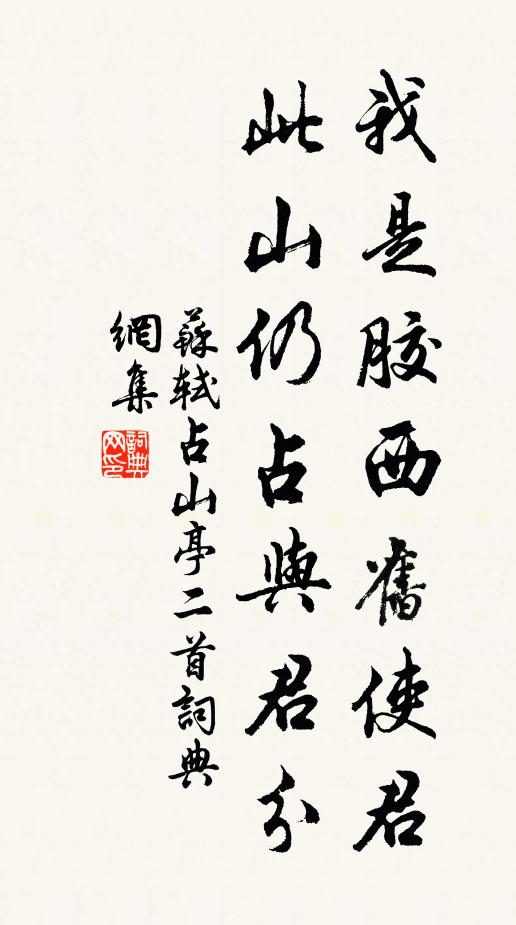 我是膠西舊使君
此山仍占與君分
蘇軾占山亭二首詞典
網集
詞典
网印